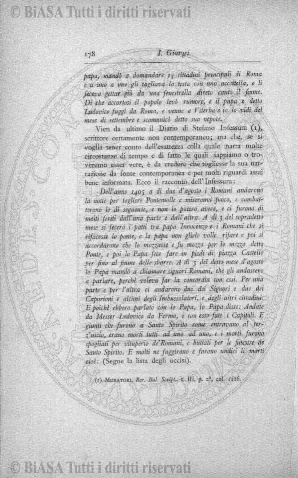 © BiASA Tutti i diritti riservati
178 I. Giorgi
papa, mandò a domandare 13 cittadini principali di Roma
e a uno a uno gli tagliava la testa con uno accettullo, e li
faceva gettar giù da una fenestrella dreto canto il fiume.
Di che accortosi il popolo levò rumore, e il papa e detto
Ludovico fuggì da Roma, e venne a Viterbo a lo uscir del
mese di settembre e scomunicò detta sua nepote.
Vien da ultimo il Diario di Stefano Infessura (1),
scrittore certamente non contemporaneo; ma che, se si
voglia tener conto dell'esattezza colla quale narra molte
circostanze di tempo e di fatto le quali sappiamo o tro-
veremo esser vere, è da credere che togliesse la sua nar-
razione da fonte contemporanea e per molti riguardi assai
bene informata. Ecco il racconto dell'Infessura:
Dell'anno 1405 a dì due d'agosto i Romani andarono
la notte per togliere Pontemolle e misersovi fuoco, e combat-
terono le dì seguente, e non lo potero avere, e ci furono di
molti feriti dall'una parte e dall'altra. A dì 3 del sopradetto
mese si fecero i patti tra papa Innocenzo e i Romani che si
refacesse lo ponte, e la papa non glielo volle rifare e poi si
accordarono che lo mezzasse fu mozzo per lo mezzo detto
Ponte, e poi lo Papa fece fare un piedi di piazza Castello
per fino al fiume delle sbarre. A dì 5 del detto mese d'agosto
lo Papa mandò a chiamare signori Romani, che gli andassero
a parlare, perchè voleva far la concordia con essi. Per una
parte e per l'altra ci andarono due dei Signori e due dei
Caporioni e alcuni degli Imbasciatori, e degli altri cittadini.
E poichè ebbero parlato con lo Papa, lo Papa disse: Andate
da Messer Ludovico da Fermo, e con esso fate i Capitoli. E
giunti che furono a Santo Spirito come entravano al ser-
vizio, erano morti tutti ad uno ad uno, e i morti furono
spogliati per vituperio de' Romani, e buttati per le finestre de
Santo Spirito. E molti ne fuggirono e furono undici li morti
cioè: (Segue la lista degli uccisi).
(1) MURATORI, Rer. Ital. Script., t. III, p. 2ª, col. 1116.
© BiASA Tutti i diritti riservati